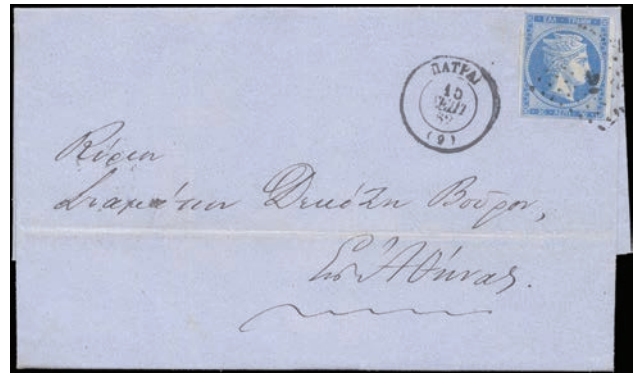 ΕΛΛ ΓΡΑΜΜ
ΠΑΤΡΑΙ
15
ΣΕΠΤ
(9)
Κύριον
Σταμάτιον Δεκόζη Βούρον,
Εἰς Ἀθήνας.